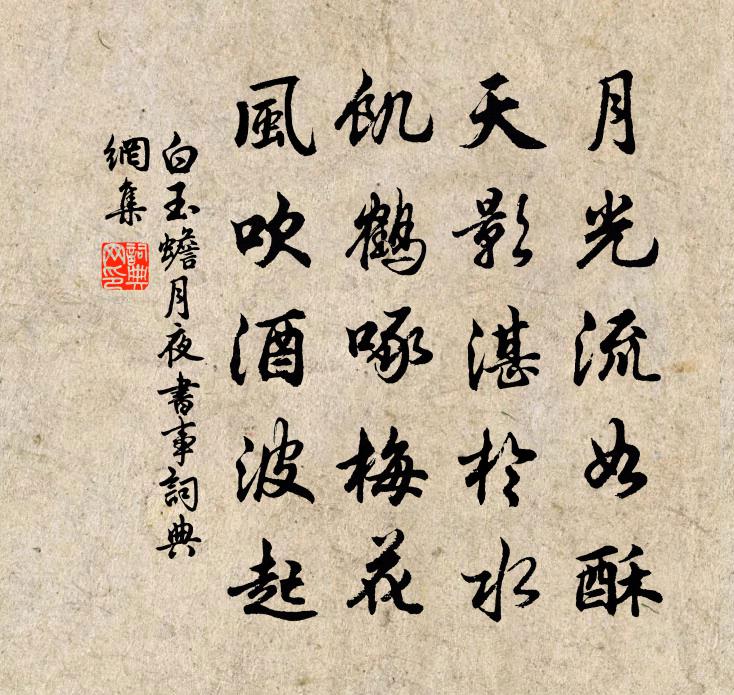 月光流如酥
天影湛於水
飢鶴啄梅花
風吹酒波起
白玉蟾月夜書事詞典
網集
詞典
网印